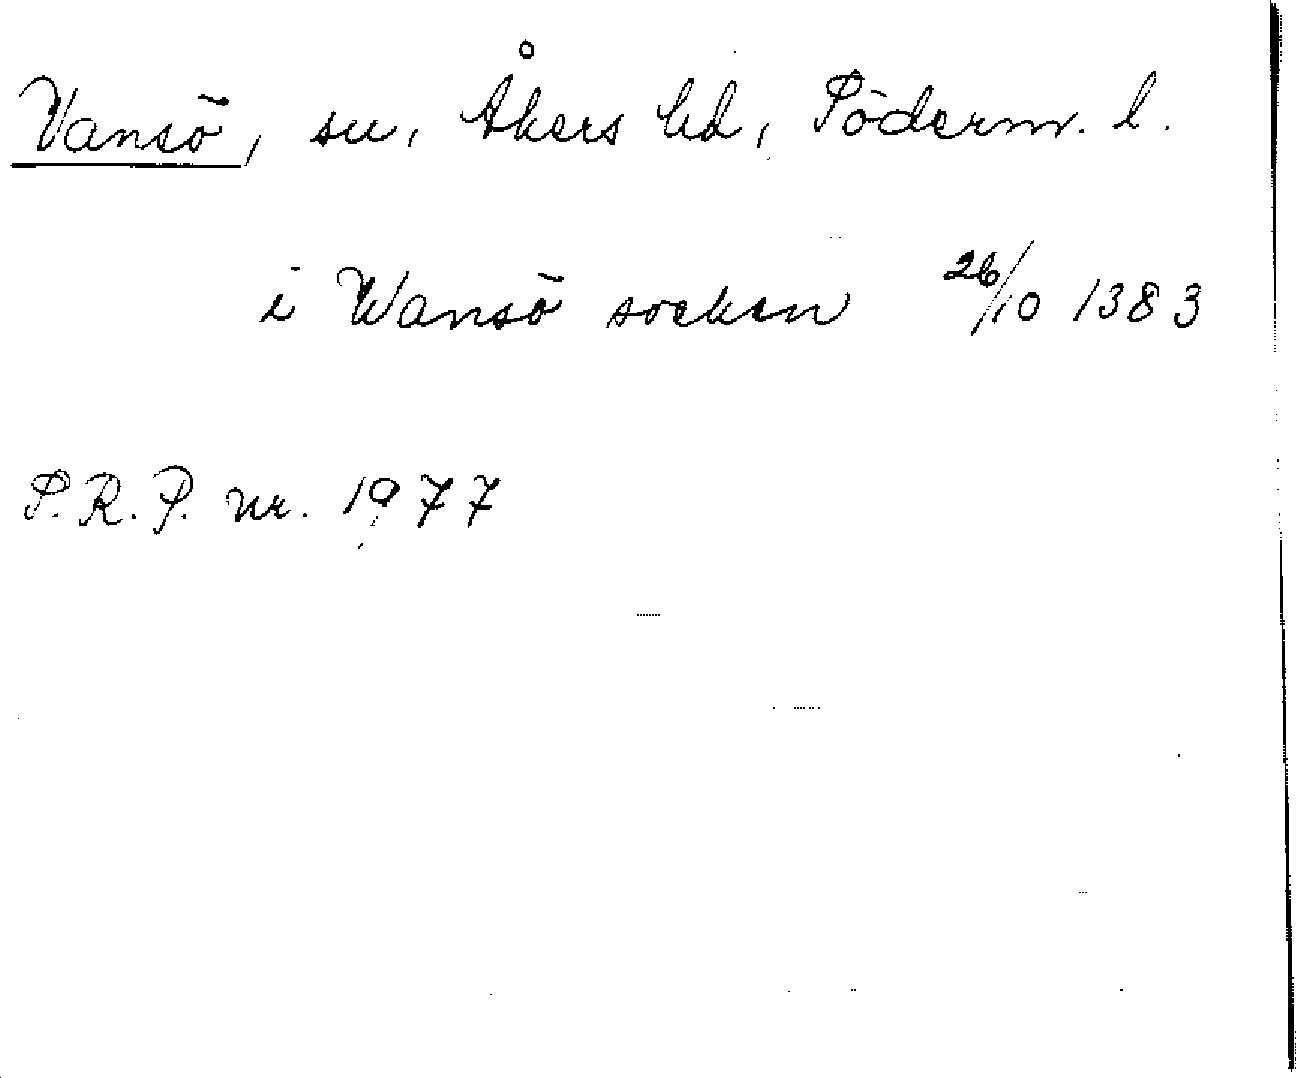 Vansö, sn, Åkers hd, Söderm. l.
i Wansö socken 26/10 1383
S.R.P. nr. 1977